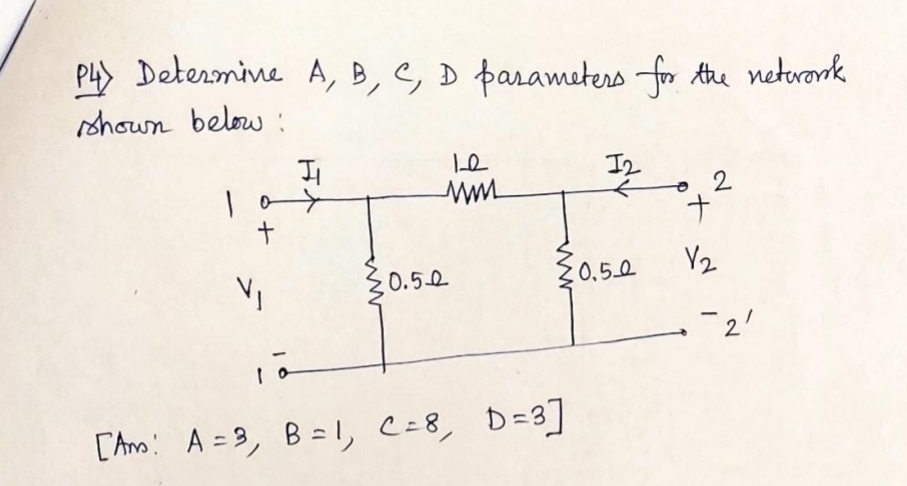 P4) Determine A, B, C, D parameters for the network
shown below :
I1 1Ω I2
1 2
+ +
V1 0.5Ω 0.5Ω V2
- - 2'
1'
[Ans: A = 3, B = 1, C = 8, D = 3]